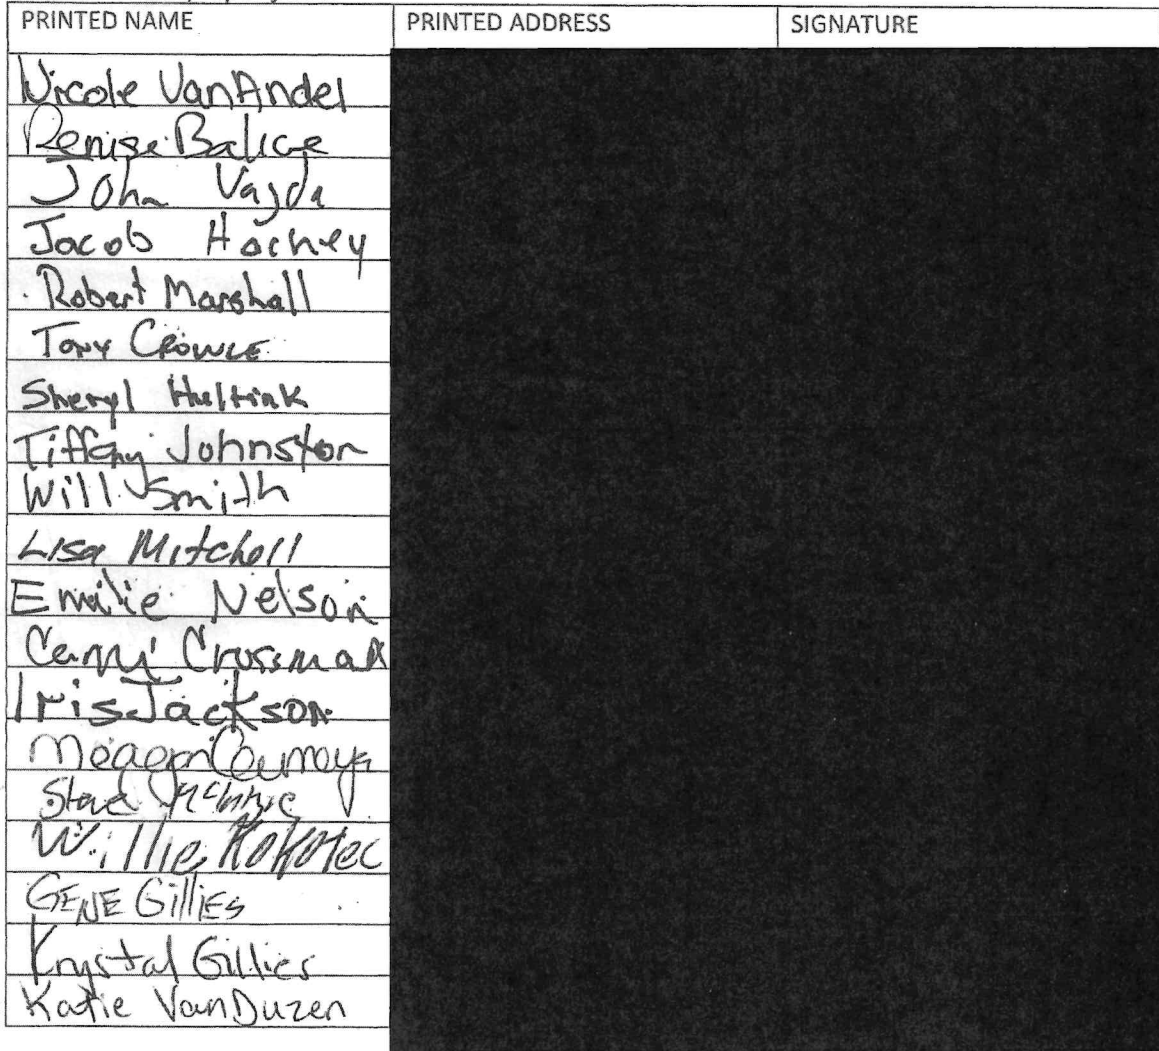 PRINTED NAME PRINTED ADDRESS SIGNATURE
Nicole VanAndel
Denise Balice
John Vajda
Jacob Hachey
Robert Marshall
Tony CROWLE
Sheryl Hultink
Tiffany Johnston
Will Smith
Lisa Mitchell
Emilie Nelson
Crossman
Iris Jackson
Meagan
Willie Kokotec
GENE GilliEs
Krystal Gillies
Katie VanDuzen